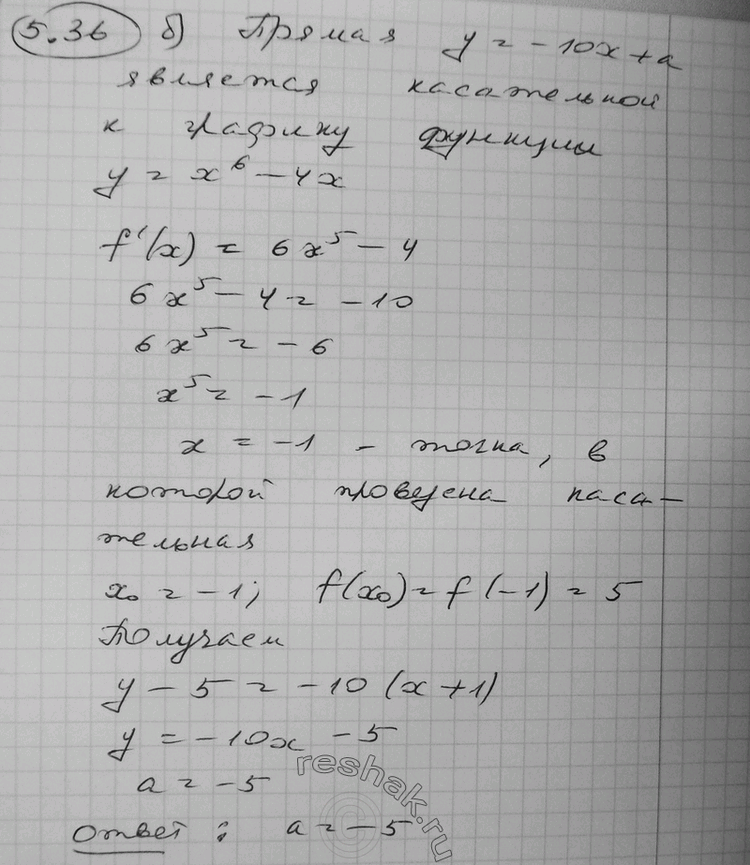 5.36 б) Прямая y = -10x + a
является касательной
к графику функции
y = x⁶ - 4x
f'(x) = 6x⁵ - 4
6x⁵ - 4 = -10
6x⁵ = -6
x⁵ = -1
x = -1 - точка, в
которой проведена каса-
тельная
x₀ = -1; f(x₀) = f(-1) = 5
Получаем
y - 5 = -10(x+1)
y = -10x - 5
a = -5
Ответ: a = -5
reshak.ru